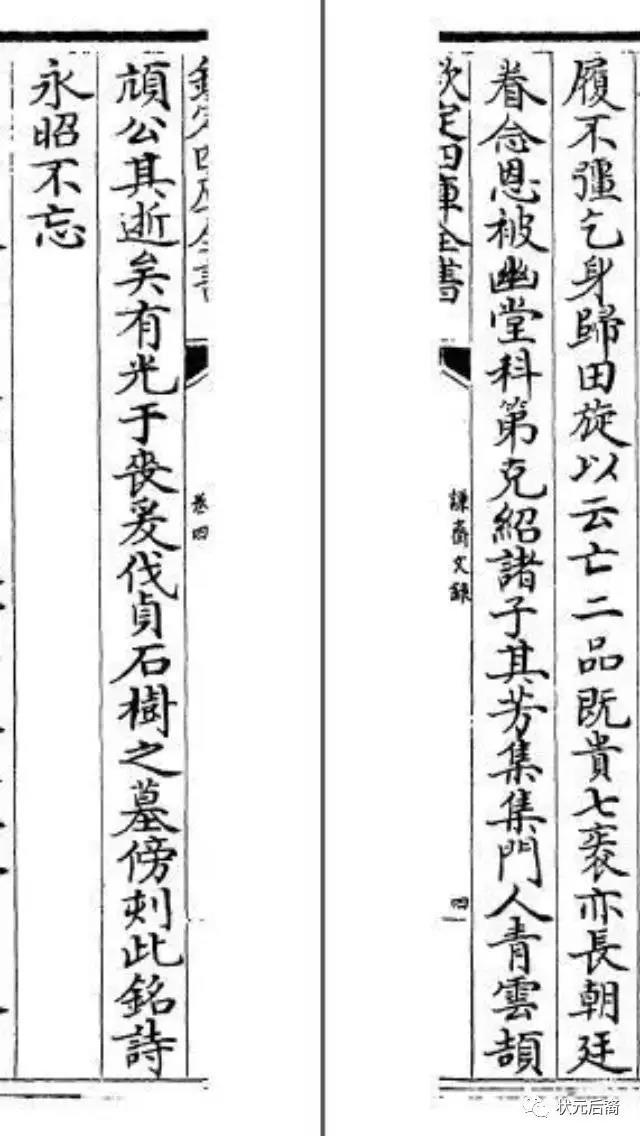 履不彊乞身歸田旋以云亡二品既貴七袠亦長朝廷
眷念恩被幽堂科第克紹諸子其芳集集門人青雲頡
欽定四庫全書
謙齋文錄
四
欽定四庫全書
卷四
頏公其逝矣有光于喪爰伐貞石樹之墓傍刻此銘詩
永昭不忘
状元后裔